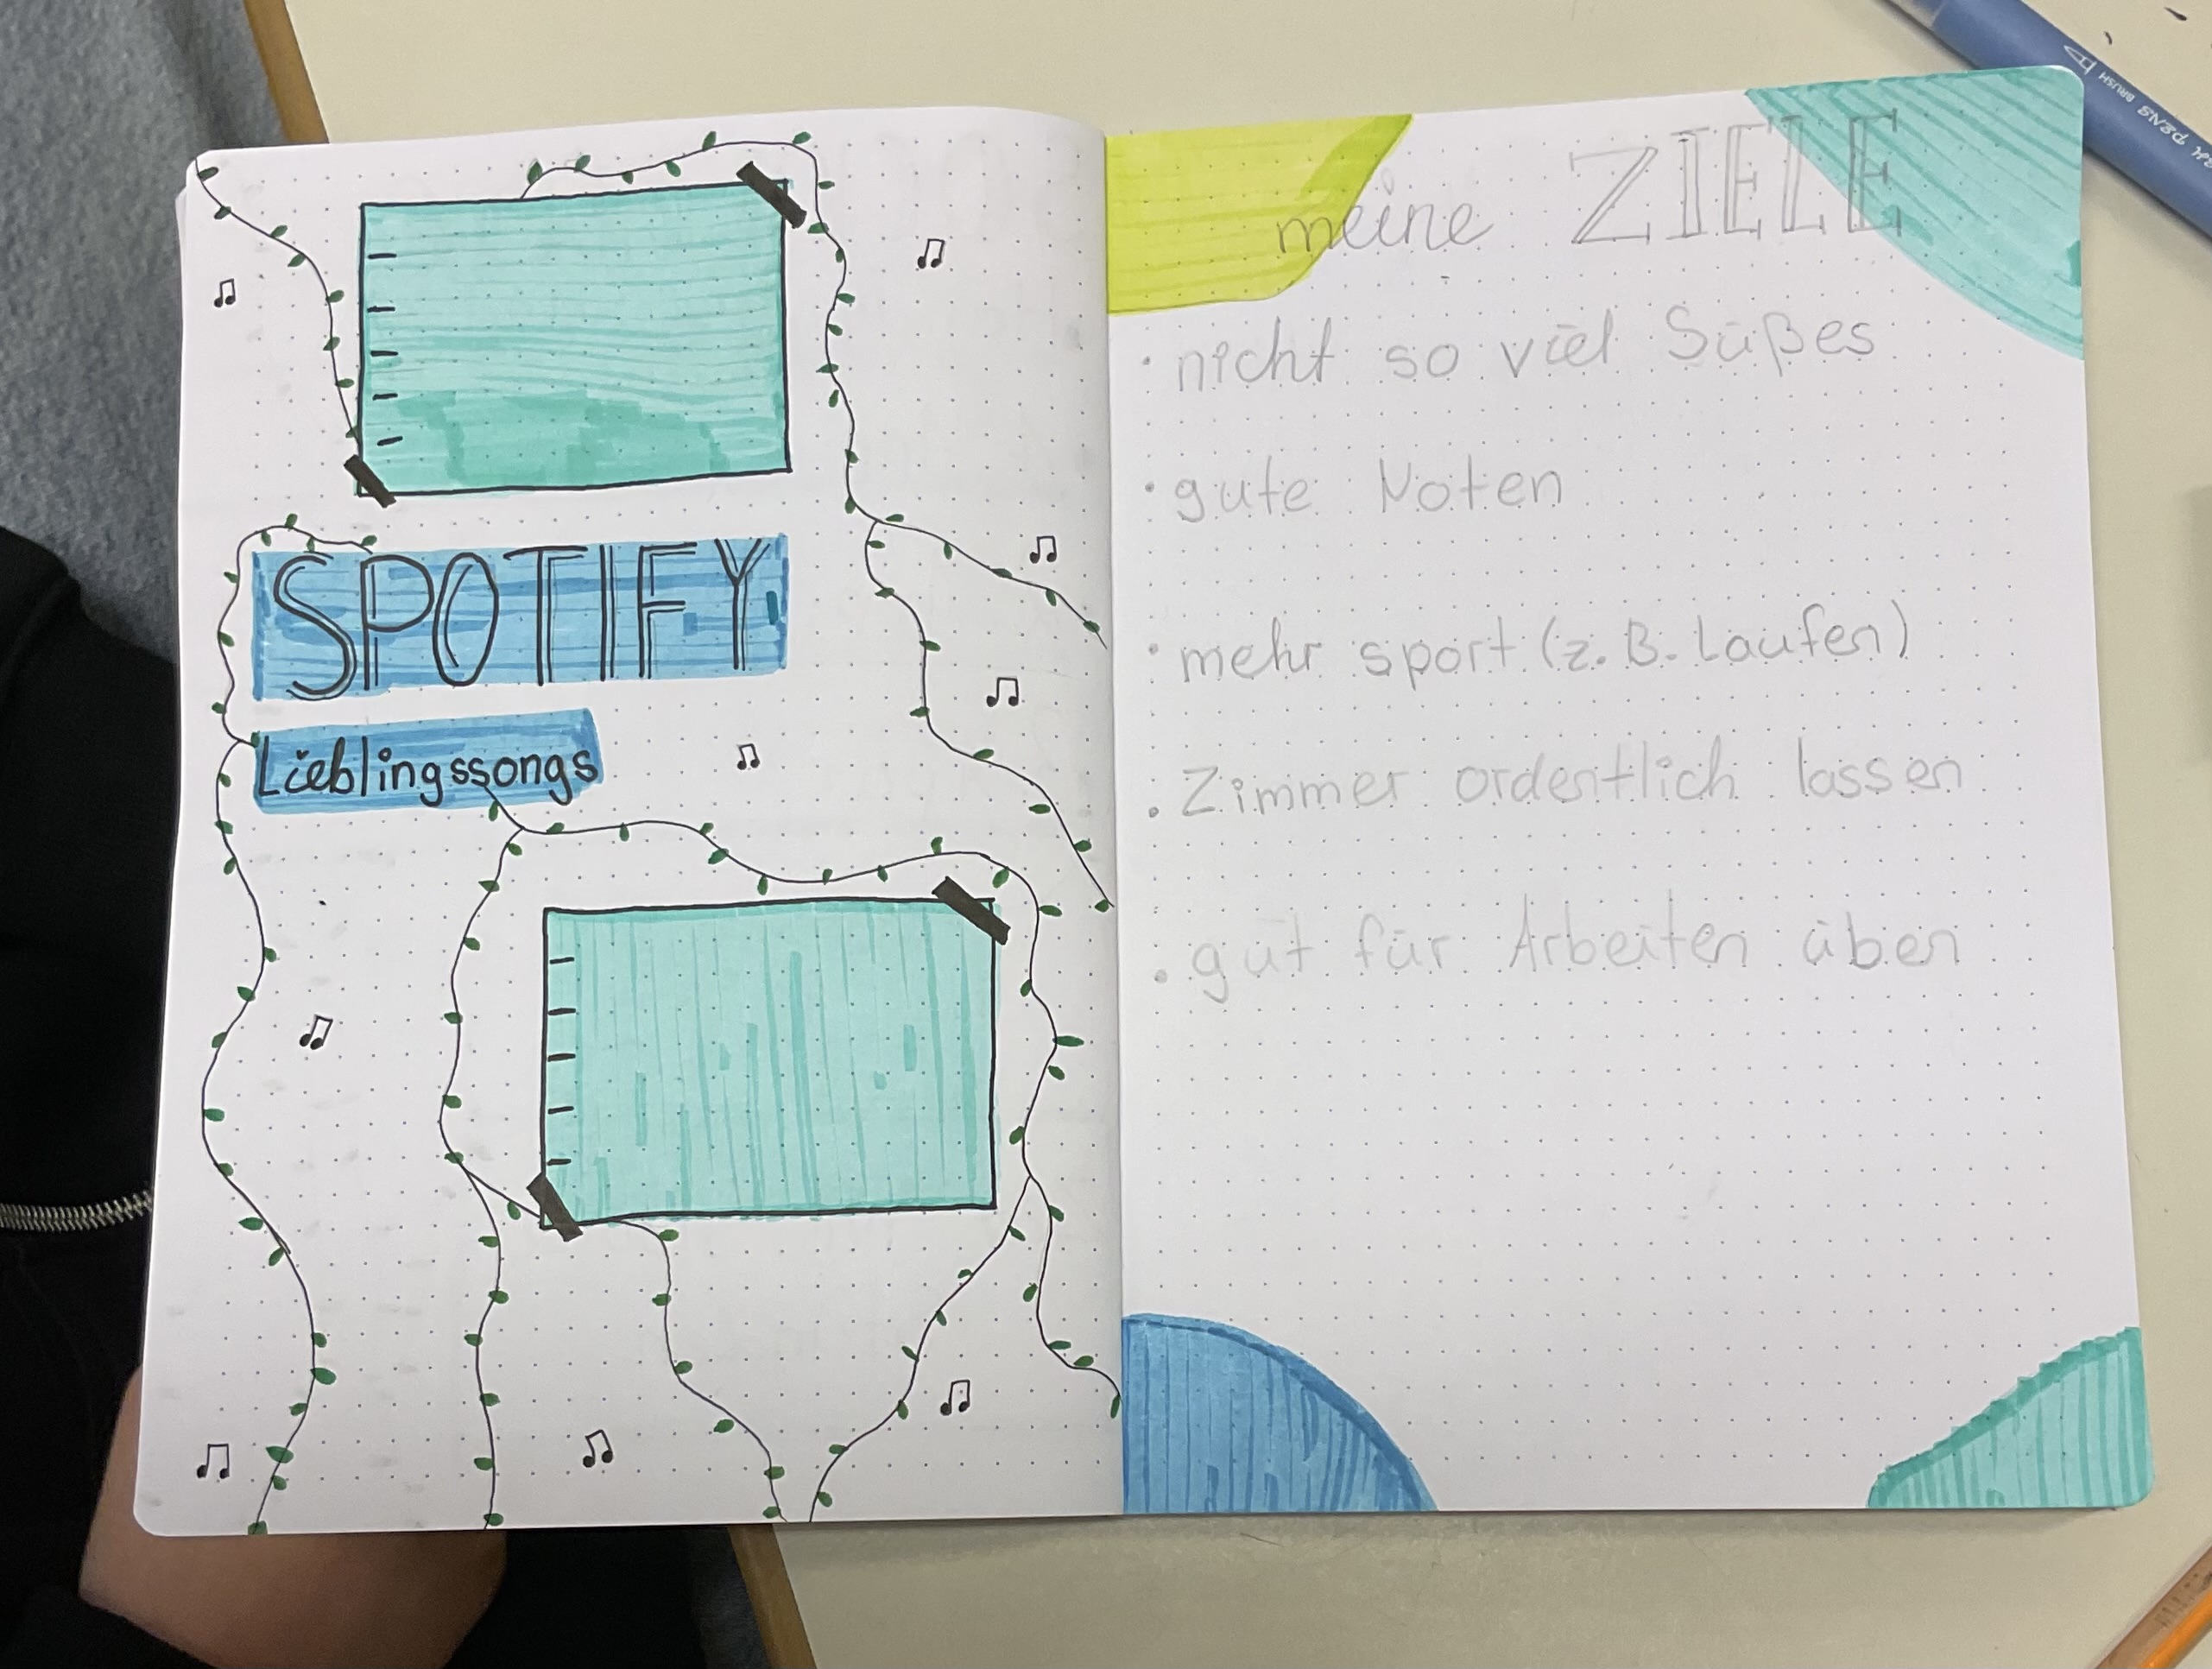 SPOTIFY
Lieblingssongs
meine ZIELE
• nicht so viel Süßes
• gute Noten
• mehr sport (z.B. Laufen)
• Zimmer ordentlich lassen
• gut für Arbeiten üben
BRUSH PENS